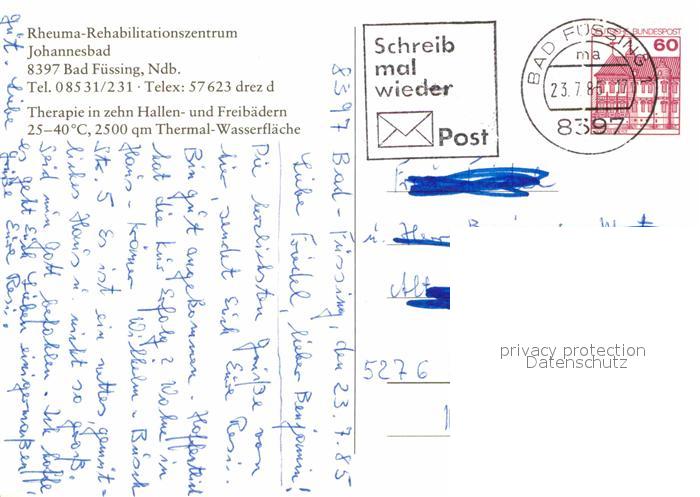 Rheuma-Rehabilitationszentrum
Johannesbad
8397 Bad Füssing, Ndb.
Tel. 08531/231 · Telex: 57623 drez d
Therapie in zehn Hallen- und Freibädern
25–40°C, 2500 qm Thermal-Wasserfläche
Schreib
mal
wieder
Post
DEUTSCHE BUNDESPOST
60
BAD FÜSSING 1
ma
23.7.85-17
8397
8397 Bad-Füssing, den 23.7.85
Liebe Friedel, lieber Benjamin!
Die herzlichsten Grüße von
hier, sendet Euch Eure Rosi.
Bin gut angekommen. Hoffentlich
hat die Kur Erfolg? Wohne in
Haus-Krämer Wilhelm-Busch
Str. 5 Es ist ein nettes, gemüt-
liches Haus u. nicht so groß.
Seid nun Gott befohlen. Ich hoffe
es geht Euch Lieben einigermaßen
gut. Liebe Grüße Eure Rosi.
u. Herr
5276
privacy protection
Datenschutz